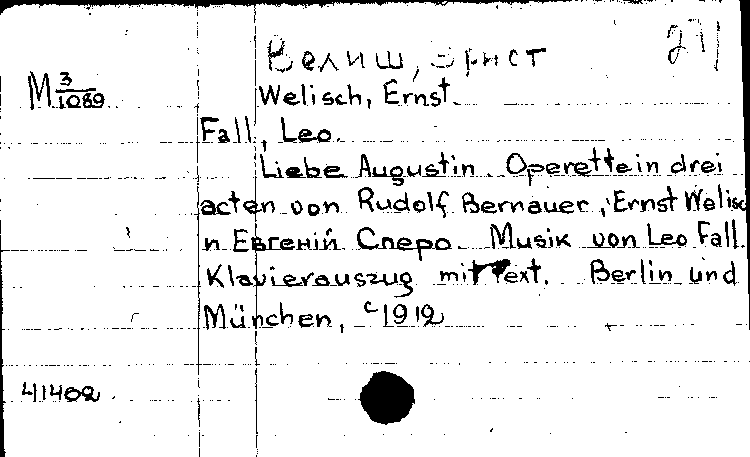 Велиш, Эрнст 271
M 3/1089
Welisch, Ernst.
Fall, Leo.
Liebe Augustin. Operette in drei
acten von Rudolf Bernauer, Ernst Welisc
и Евгений Сперо. Musik von Leo Fall.
Klavierauszug mit Text. Berlin und
München, c 1912
41402